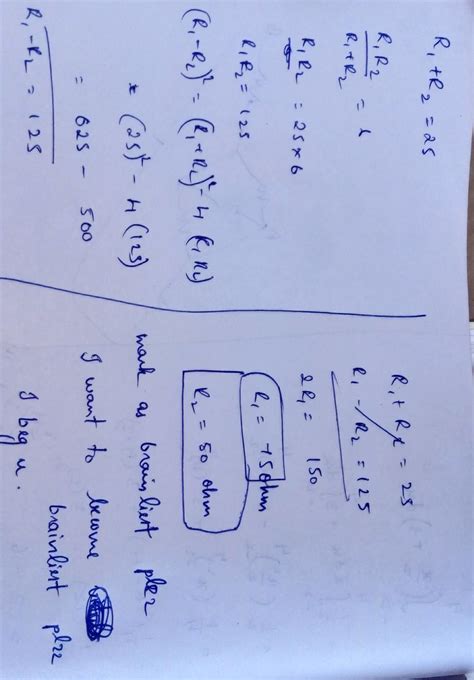 R₁ + R₂ = 25
R₁R₂ / R₁+R₂ =
R₁R₂ = 25×6
R₁R₂ = 125
(R₁ - R₂)² = (R₁+R₂)² - 4 (R₁R₂)
(25)² - 4 (125)
= 625 - 500
R₁ - R₂ = 125
R₁ + R₂ = 25
R₁ - R₂ = 125
2R₁ = 150
R₁ = 75ohm
R₂ = 50 ohm
mark as brainliest
I want to become
brainliest plzz
I beg u.